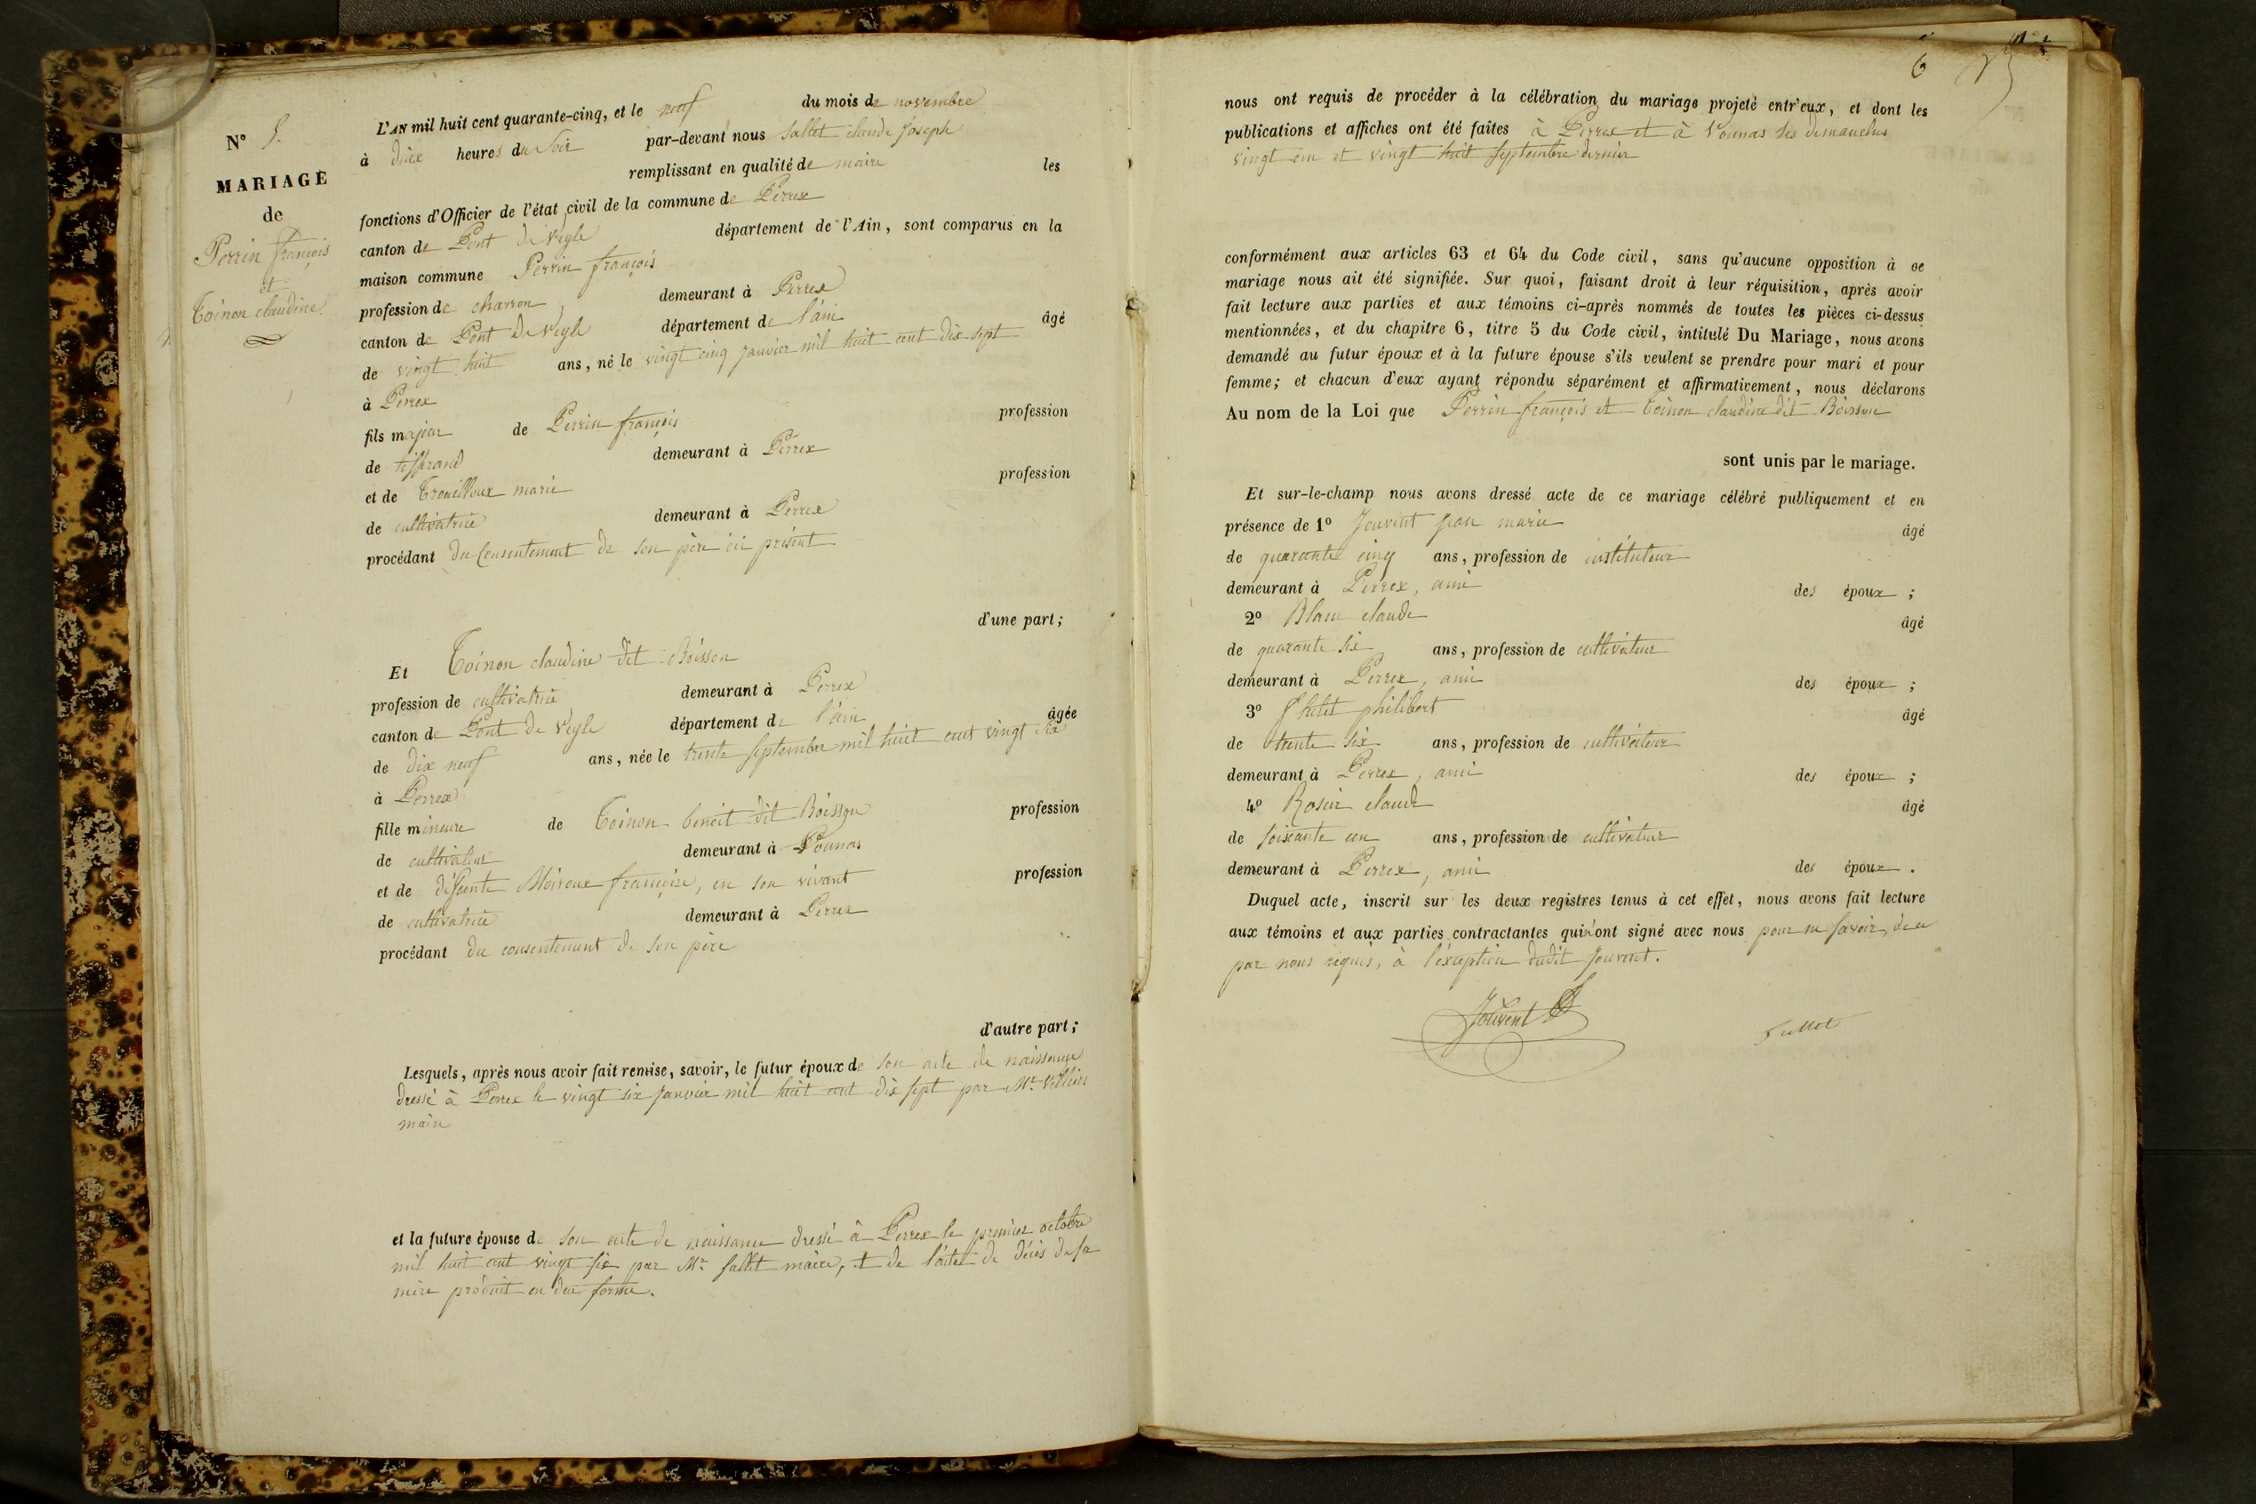 N° 5.
MARIAGE
de
Perrin françois
et
Toinon claudine
L'AN mil huit cent quarante-cinq, et le neuf du mois de novembre
à deux heures du soir par-devant nous Sallet claude Joseph
remplissant en qualité de maire les
fonctions d'Officier de l'état civil de la commune de Perrex
canton de Pont de Veyle département de l'Ain, sont comparus en la
maison commune Perrin françois
profession de charron demeurant à Perrex
canton de Pont de Veyle département de l'ain âgé
de vingt huit ans, né le vingt cinq janvier mil huit cent dix sept
à Perrex
fils majeur de Perrin françois profession
de tisserand demeurant à Perrex
et de Trouilloux marie profession
de cultivatrice demeurant à Perrex
procédant du Consentement de son père ici présent
d'une part;
Et Toinon claudine dit Boisson
profession de cultivatrice demeurant à Perrex
canton de Pont de Veyle département de l'ain âgée
de dix neuf ans, née le trente septembre mil huit cent vingt six
à Perrex
fille mineure de Toinon benoit dit Boisson profession
de cultivateur demeurant à Vounas
et de défunte Moiroux françoise, en son vivant profession
de cultivatrice demeurant à Perrex
procédant du consentement de son père
d'autre part;
Lesquels, après nous avoir fait remise, savoir, le futur époux de son acte de naissance
dressé à Perrex le vingt six janvier mil huit cent dix sept par Mr
maire
et la future épouse de son acte de naissance dressé à Perrex le premier octobre
mil huit cent vingt six par Mr Sallet maire, et de l'acte de décès de sa
mère produit en due forme.
6
nous ont requis de procéder à la célébration du mariage projeté entr'eux, et dont les
publications et affiches ont été faites à Perrex et à Vounas les dimanches
vingt un et vingt huit septembre dernier
conformément aux articles 63 et 64 du Code civil, sans qu'aucune opposition à ce
mariage nous ait été signifiée. Sur quoi, faisant droit à leur réquisition, après avoir
fait lecture aux parties et aux témoins ci-après nommés de toutes les pièces ci-dessus
mentionnées, et du chapitre 6, titre 5 du Code civil, intitulé Du Mariage, nous avons
demandé au futur époux et à la future épouse s'ils veulent se prendre pour mari et pour
femme; et chacun d'eux ayant répondu séparément et affirmativement, nous déclarons
Au nom de la Loi que Perrin françois et Toinon claudine dit Boisson
sont unis par le mariage.
Et sur-le-champ nous avons dressé acte de ce mariage célébré publiquement et en
présence de 1° Jouvent jean marie âgé
de quarante cinq ans, profession de instituteur
demeurant à Perrex, ami des époux;
2° Blanc claude âgé
de quarante six ans, profession de cultivateur
demeurant à Perrex, ami des époux;
3° philibert âgé
de trente six ans, profession de cultivateur
demeurant à Perrex, ami des époux;
4° claude âgé
de soixante un ans, profession de cultivateur
demeurant à Perrex, ami des époux.
Duquel acte, inscrit sur les deux registres tenus à cet effet, nous avons fait lecture
aux témoins et aux parties contractantes qui n'ont signé avec nous pour ne savoir, de ce
par nous requis, à l'exception dudit Jouvent.
Jouvent
Sallet